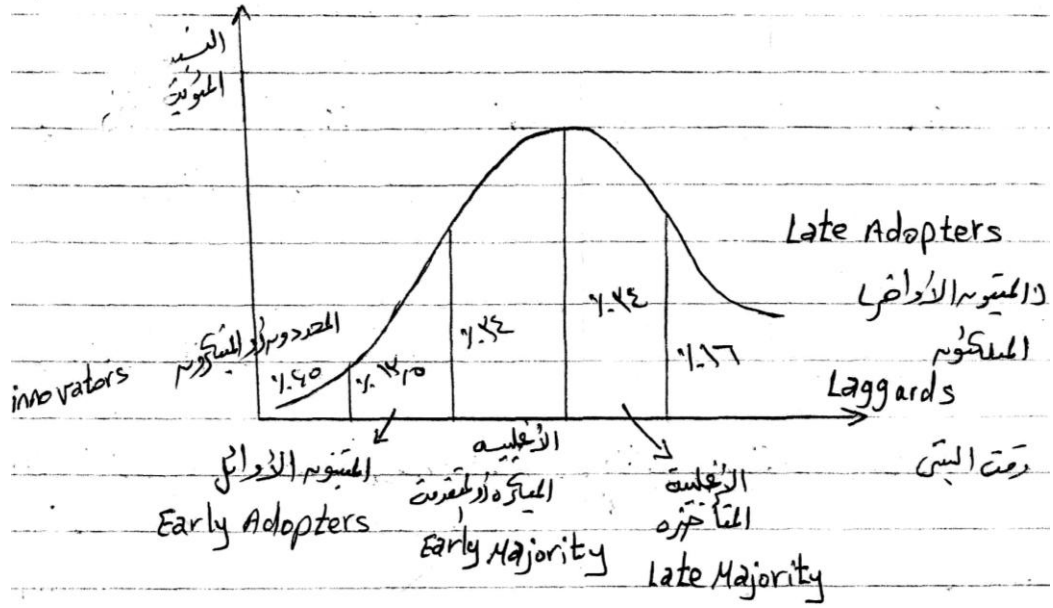 النسبة
المئوية
Late Adopters
(المتبنون الأواخر)
٪٣٤
٪٣٤
المتلكئون
٪١٦
المجددون أو المبتكرون
innovators
٪٢,٥
٪١٣,٥
Laggards
المتبنون الأوائل
Early Adopters
الأغلبية
المبكرة أو المتقدمة
Early Majority
الأغلبية
المتأخرة
Late Majority
وقت التبني